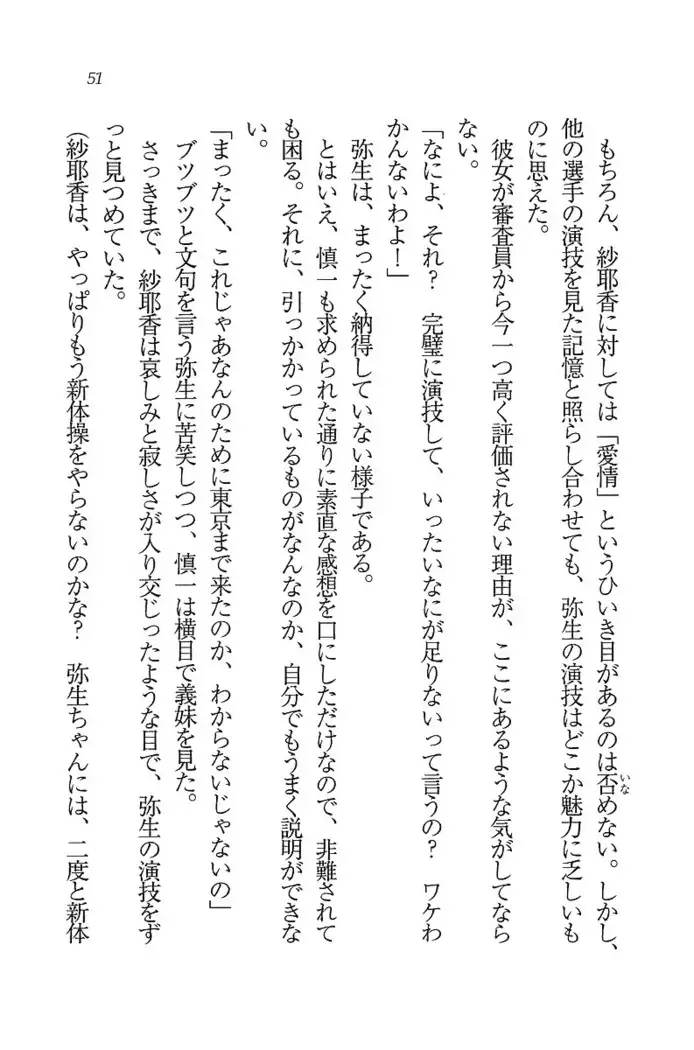 51
もちろん、紗耶香に対しては「愛情」というひいき目があるのは否めない。しかし、
いな
他の選手の演技を見た記憶と照らし合わせても、弥生の演技はどこか魅力に乏しいも
のに思えた。
彼女が審査員から今一つ高く評価されない理由が、ここにあるような気がしてなら
ない。
「なによ、それ？　完璧に演技して、いったいなにが足りないって言うの？　ワケわ
かんないわよ！」
弥生は、まったく納得していない様子である。
とはいえ、慎一も求められた通りに素直な感想を口にしただけなので、非難されて
も困る。それに、引っかかっているものがなんなのか、自分でもうまく説明ができな
い。
「まったく、これじゃあなんのために東京まで来たのか、わからないじゃないの」
ブツブツと文句を言う弥生に苦笑しつつ、慎一は横目で義妹を見た。
さっきまで、紗耶香は哀しみと寂しさが入り交じったような目で、弥生の演技をず
っと見つめていた。
（紗耶香は、やっぱりもう新体操をやらないのかな？　弥生ちゃんには、二度と新体